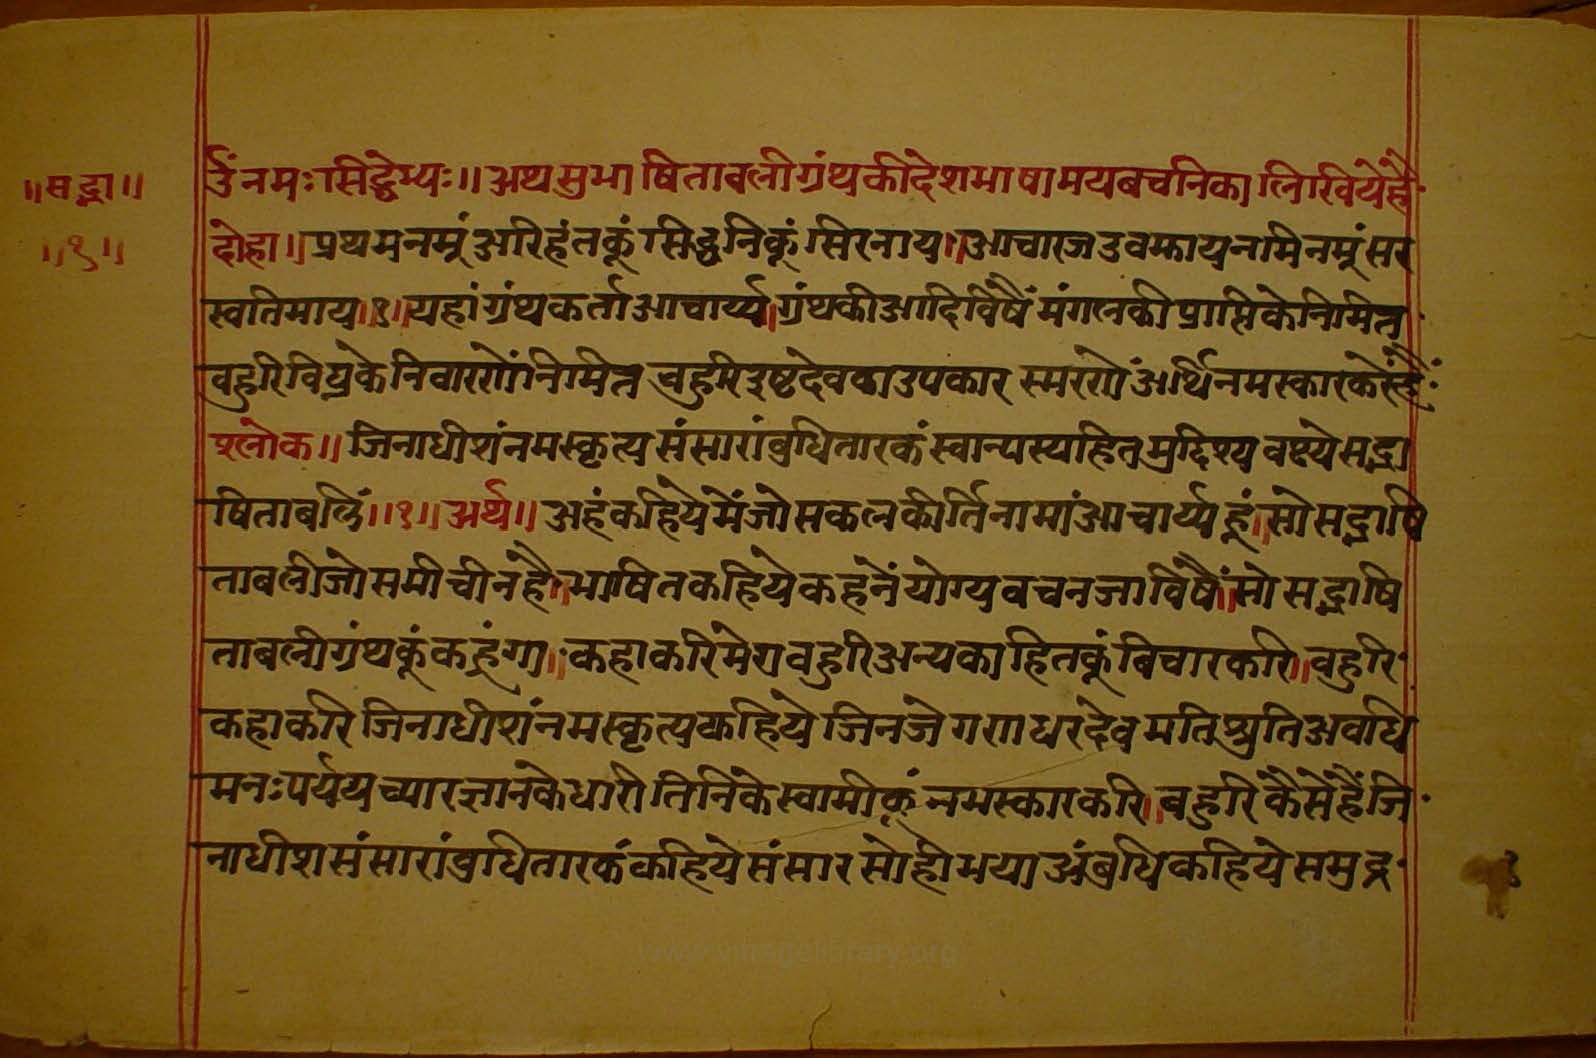 ॥सद्भा॥
॥१॥
उँनमःसिद्धेभ्यः॥अथसुभाषितावलीग्रंथकीदेशभाषामयबचनिकालिखियेहै
दोहा॥प्रथमनमूंअरिहंतकूंसिद्धनिकूंसिरनाय॥आचारजउवझायनमिनमूंसर
स्वतिमाय॥१॥यहांग्रंथकर्ताआचार्य्य।ग्रंथकीआदिविषैंमंगलकीप्राप्तिकेनिमित्त
बहुरिविघ्नकेनिवारणेंनिमित्त बहुरिइष्टदेवकाउपकार स्मरणेंअर्थिनमस्कारकरेंहैं
श्लोक॥जिनाधीशंनमस्कृत्यसंसारांबुधितारकंस्वान्यस्यहितमुद्दिश्यवक्ष्येसद्भा
षिताबलिं॥१॥अर्थ॥अहंकहियेमेंजोसकलकीर्तिनामांआचार्य्यहूं॥सोसद्भाषि
ताबलीजोसमीचीनहै॥भाषितकहियेकहनेंयोग्यवचनजाविषैं॥सोसद्भाषि
ताबलीग्रंथकूंकहूंगा॥कहाकरिमेराबहुरिअन्यकाहितकूंबिचारकरि॥बहुरि
कहाकरिजिनाधीशंनमस्कृत्यकहियेजिनजेगणधरदेवमतिश्रुतिअवधि
मनःपर्ययच्यारज्ञानकेधारीतिनिकेस्वामीकूंनमस्कारकरि॥बहुरिकैसेंहैंजि
नाधीशसंसारांबुधितारकंकहियेसंसारसोहीभयाअंबुधिकहियेसमुद्र
www.vitragelibrary.org